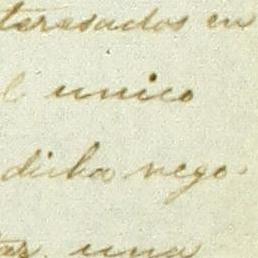 teresados en
l unico
dicha nego-
tar una